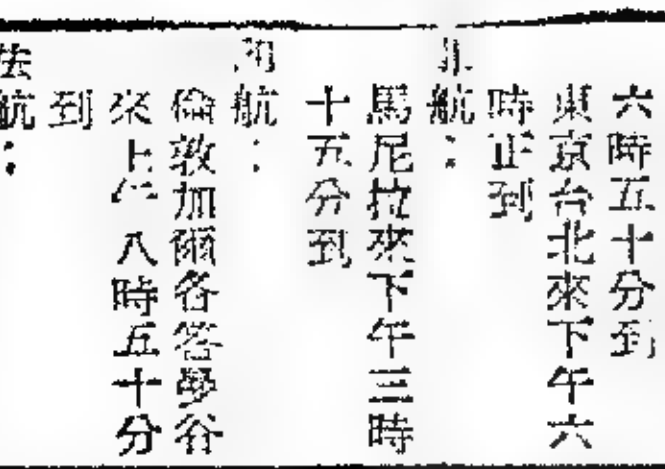 六時五十分到
東京台北來下午六
時正到
航：
馬尼拉來下午三時
十五分到
航：
倫敦加爾各答學谷
來上午八時五十分
到
法航：